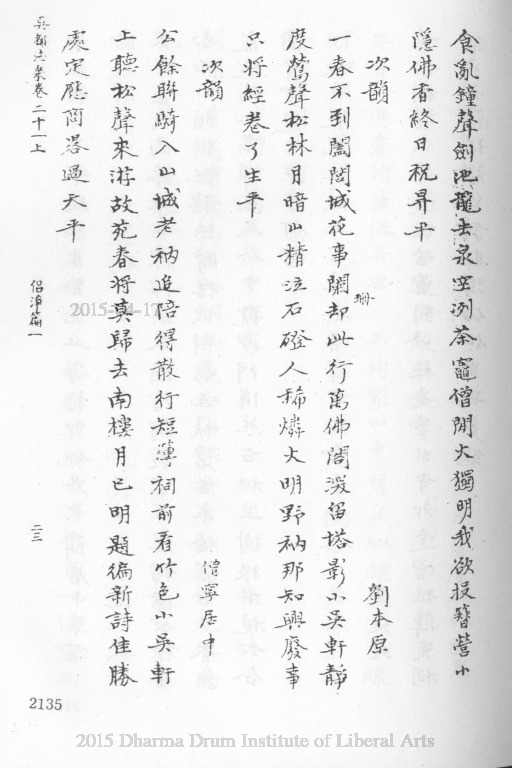 食亂鐘聲劍池龍去泉空冽茶竈僧閒火獨明我欲投簪營小
隱佛香終日祝昇平
次韻
劉本原
一春不到闔閭城花事闌珊却此行萬佛閣深留塔影小吳軒靜
度鶯聲松林月暗山精泣石磴人稀燐火明野衲那知興廢事
只將經卷了生平
次韻
僧寧居中
公餘聯騎入山城老衲追陪得散行短簿祠前看竹色小吳軒
上聽松聲來游故苑春將莫歸去南樓月已明題徧新詩佳勝
處定應商畧過天平
吳都志柒卷二十一上
侶泊庵一
二三
2135
2015-04-17
2015 Dharma Drum Institute of Liberal Arts